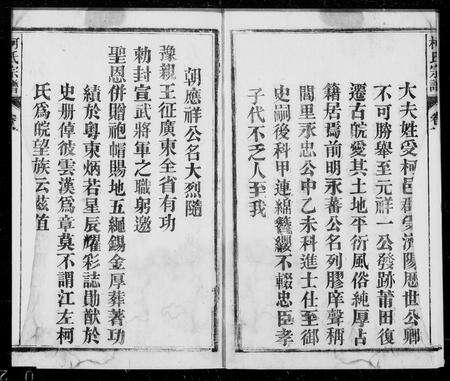 柯氏宗譜
大夫姓受柯邑郡寔濟陽歷世公卿
不可勝舉至元祥一公發跡莆田復
遷古皖愛其土地平衍風俗純厚占
籍居焉前明永蕃公名列膠庠聲稱
閭里永忠公中乙未科進士仕至御
史嗣後科甲連綿簪纓不輟忠臣孝
子代不乏人至我
朝應祥公名大烈隨
豫親王征廣東全省有功
勅封宣武將軍之職躬邀
聖恩併贈袍帽賜地五繩錫金厚葬著功
績於粵東炳若星辰耀彩誌勛猷於
史册倬彼雲漢爲章莫不謂江左柯
氏爲皖望族云茲值
柯氏宗譜